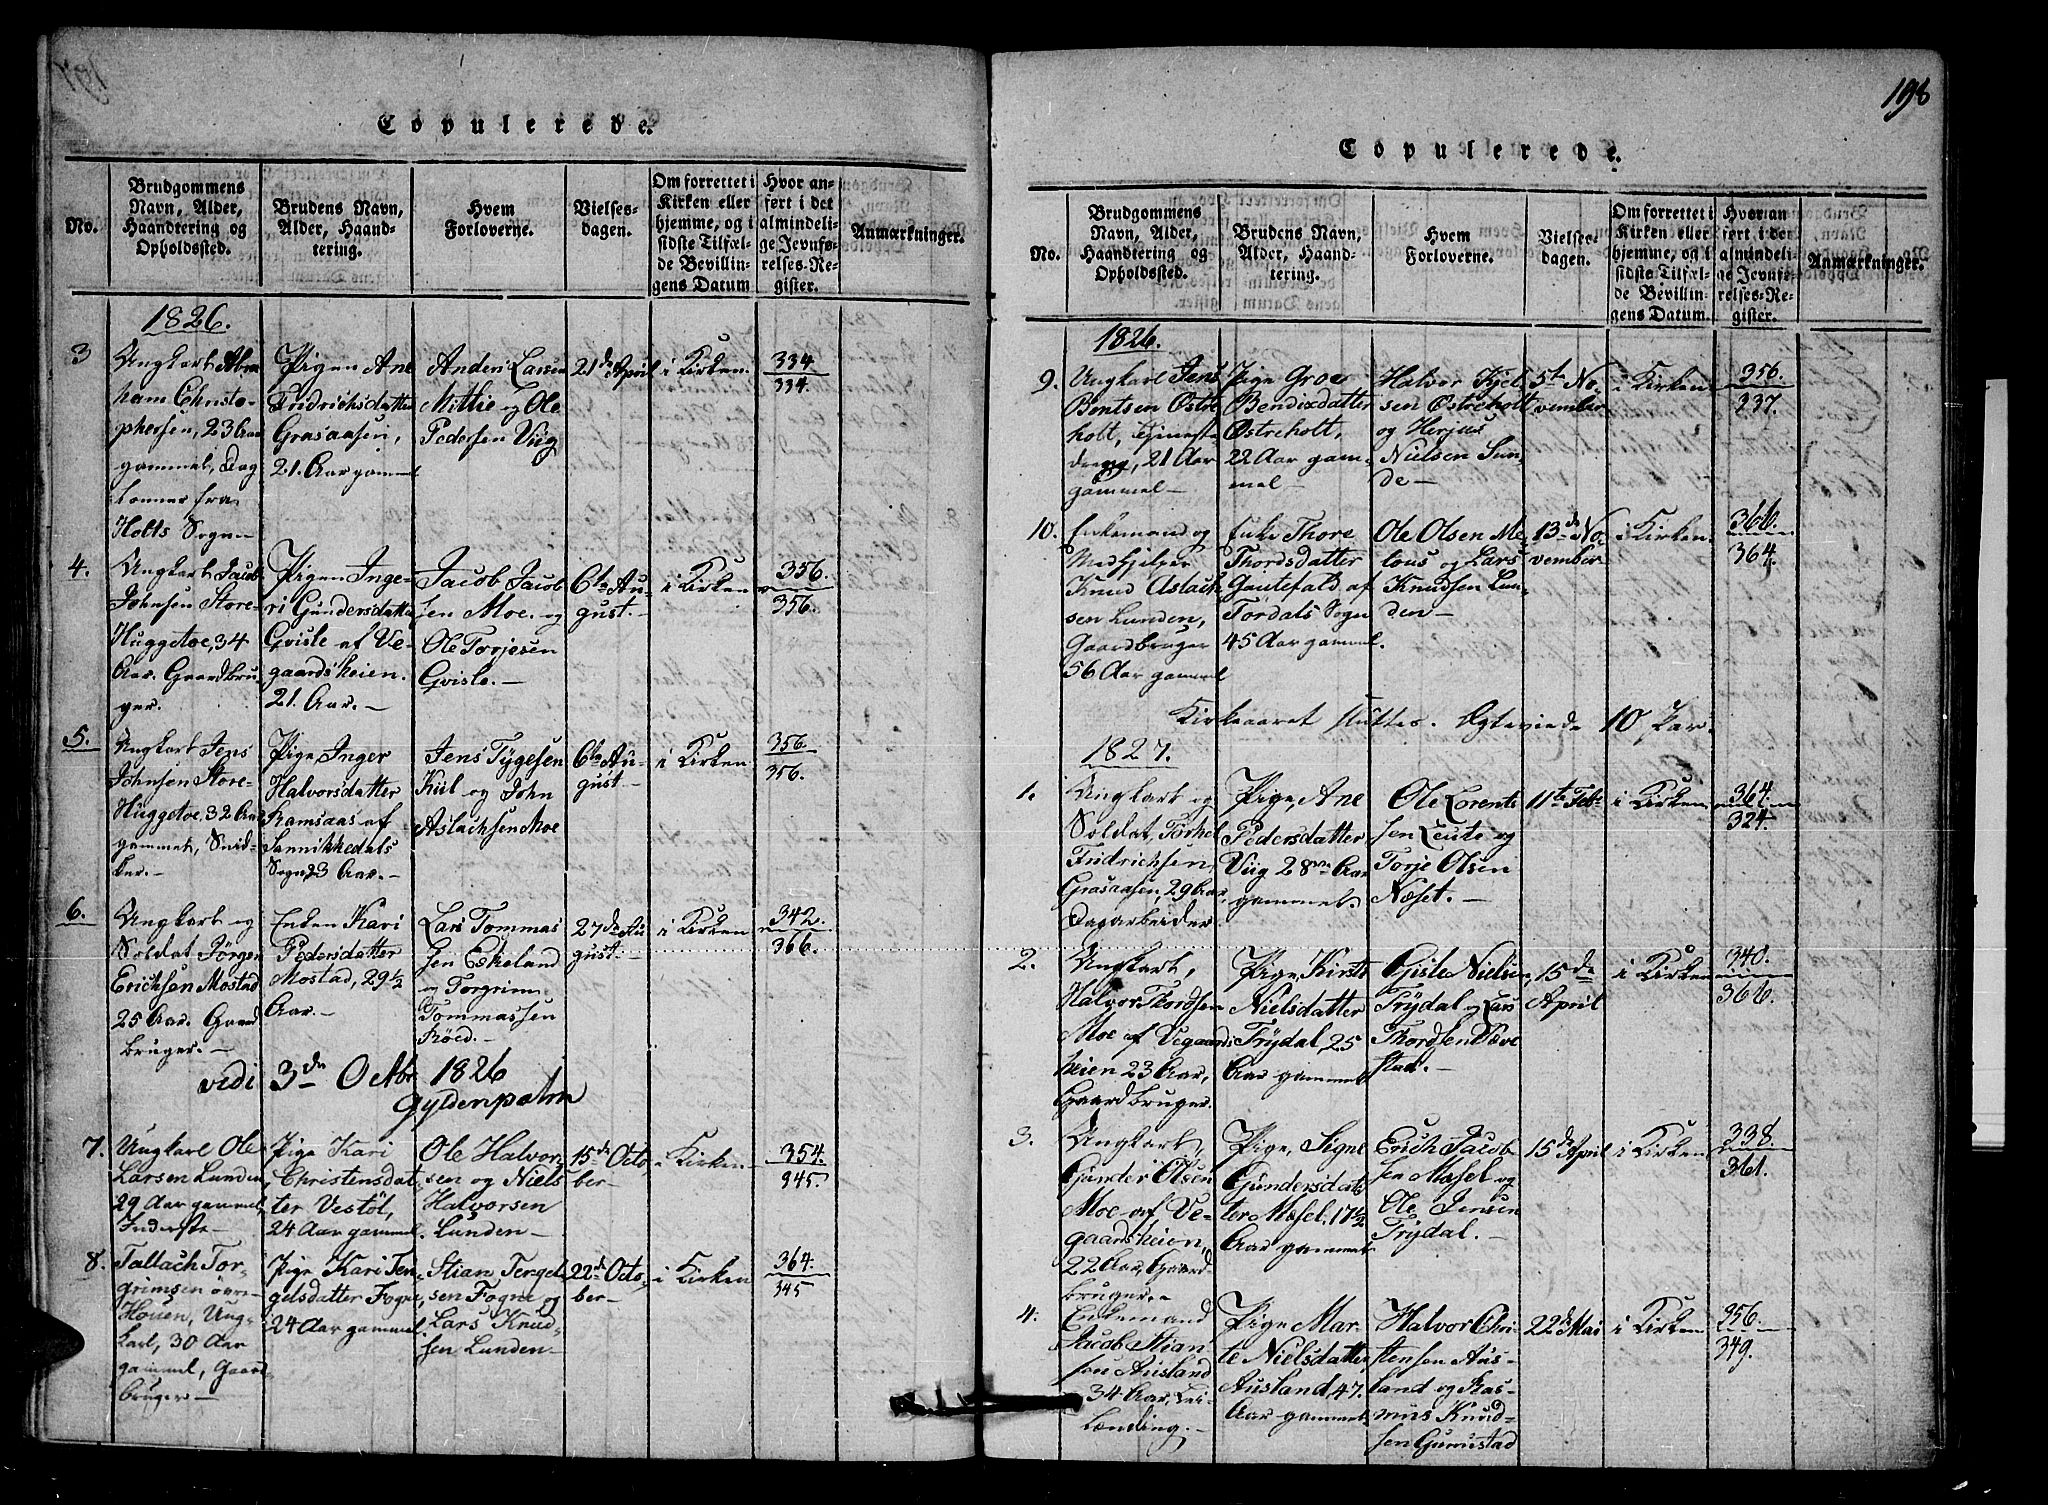 Copulerede.
No.
Brudgommens
Navn, Alder,
Haandtering og
Opholdssted.
Brudens Navn,
Alder, Haand-
tering.
Hvem
Forloverne.
Vielses-
dagen.
Om forrettet i
Kirken eller
hjemme, og i
sidste Tilfæl-
de Bevillin-
gens Datum
Hvor an-
ført i det
almindeli-
ge Jevnfø-
relses-Re-
gister.
Anmærkninger.
1826.
3
Ungkarl Abra
ham Christo-
phersen, 23 Aar
gammel, Dag
lønner fra
Holts Sogn
Pigen Ane
Fridrichsdatter
Grasaasen,
21. Aar gammel
Anders Larsen
Mittie og Ole
Pedersen Viig
21de April
i Kirken.
334
334.
4.
Ungkarl Jacob
Johnsen Store-
Huggetoe, 34
Aar. Gaardbru
ger.
Pigen Inge-
ri Gundersdatter
Gvisle af Ve-
gaardsheien.
21. Aar.
Jacob Jacob
sen Moe. og
Ole Torjesen
Gvisle.
6te Au-
gust
i Kirken
356.
356.
5.
Ungkarl Jens
Johnsen Store-
Huggetoe, 32 Aar
gammel, Snid-
ker.
Pige Inger
Halvorsdatter
Ramsaas af
Sannikkedals
Sogn, 23 Aar.
Jens Tygesen
Kiil og John
Aslachsen Moe
6te Au-
gust
i Kirken
356.
356.
6.
Ungkarl og
Soldat Jörgen
Erichsen Mostad
25 Aar. Gaard
bruger.
Enken Kari
Pedersdatter
Mostad, 29 1/2
Aar.
Lars Tommas
sen Eskeland
og Torgrim
Tommassen
Röed.
27de Au
gust.
i Kirken
342.
366.
vidi 3de Octbr 1826
Gyldenpalm
7.
Ungkarl Ole
Larsen Lunden
29 Aar gammel,
Inderste
Pige Kari
Christensdat
ter Vestöl,
24 Aar gammel.
Ole Halvor
sen og Niels
Halvorsen
Lunden
15de Octo
ber
i Kirken
354.
345.
8.
Tallach Tor-
grimsen övre
Houen, Ung-
karl, 30 Aar
gammel, Gaard
bruger
Pige Kari Ten
gelsdatter Fogne,
24 Aar gammel.
Stian Tergel
sen Fogne og
Lars Knud-
sen Lunden
22de Octo-
ber
i Kirken
364.
345
198
Copulerede.
No.
Brudgommens
Navn, Alder,
Haandtering og
Opholdssted.
Brudens Navn,
Alder, Haand-
tering.
Hvem
Forloverne.
Vielses-
dagen.
Om forrettet i
Kirken eller
hjemme, og i
sidste Tilfæl-
de Bevillin-
gens Datum.
Hvor an
ført i det
almindeli-
ge Jevnfø-
relses-Re-
gister.
Anmærkninger.
1826.
9.
Ungkarl Jens
Bentsen Östre
holt, tjeneste
dreng, 21 Aar
gammel
Pige Groe
Bendixdatter
Østreholt,
22 Aar gam-
mel
Halvor Kjel
sen Østreholt
og Herjus
Nielsen Sun-
de
5te No-
vember
i Kirken
356.
337.
10.
Enkemand og
Medhjelper
Knud Aslach
sen Lunden,
Gaardbruger
56 Aar gammel
Enke Thore
Thordsdatter
Gautefald af
Tordals Sogn
45 Aar gammel.
Ole Olsen Me-
lous og Lars
Knudsen Lun-
den
13de No-
vember
i Kirken
366.
364.
Kirkeaaret sluttes. Ægteviede 10 Par.
1827.
1.
Ungkarl og
Soldat, Torkel
Fridrichsen
Grasaasen, 29 Aar,
Dagarbeider
Pige, Ane
Pedersdatter
Viig 28 Aar
gammel.
Ole Lorents
sen Leute og
Torje Olsen
Næset.
11te Feb
i Kirken
364
324.
2.
Ungkarl,
Halvor Thordsen
Moe af Vegaards
heien 23 Aar,
Gaardbruger.
Pige, Kirste
Nielsdatter
Trydal, 25
Aar gammel
Gisle Nielsen
Trydal og Lars
Thordsen Tæve
stad.
15de
April
i Kirken
340.
366.
3.
Ungkarl,
Gunder Olsen
Moe af Ve-
gaardsheien,
22 Aar, Gaard-
bruger.
Pige, Signe
Gundersdat
ter Mæsel. 17 1/2
Aar gammel
Erich Jacob
sen Mæsel og
Ole Jensen
Trydal.
15de April
i Kirken
338.
361.
4.
Enkemand
Jacob Stian
sen Ausland
34 Aar, Lei-
lænding.
Pige, Mar
te Nielsdatter
Ausland, 47.
Aar gammel
Halvor Chri-
stensen Aus-
land og Ras-
mus Knud-
sen Gumistad
22de Mai
i Kirken
356.
349.